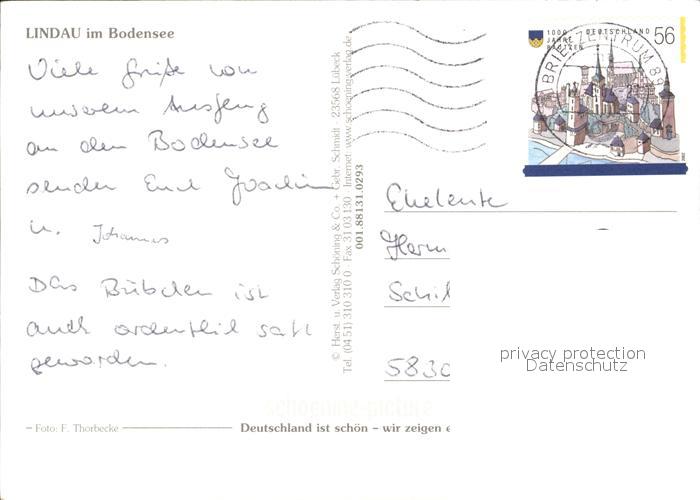 LINDAU im Bodensee
Viele Grüße von
unserem Ausflug
an den Bodensee
senden Euch Joachim
u. Johannes
Das Bübchen ist
auch ordentlich satt
geworden.
Foto: F. Thorbecke
© Herst. u. Verlag Schöning & Co. + Gebr. Schmidt · 23568 Lübeck
Tel. (04 51) 310 310 0 · Fax 31 03 130 · Internet www.schoeningverlag.de
001.88131.0293
1000 JAHRE BAUTZEN
DEUTSCHLAND
56
2002
BRIEFZENTRUM 89
Eheleute
Herm
Schil
5830
privacy protection
Datenschutz
schoening-picture
Deutschland ist schön – wir zeigen e